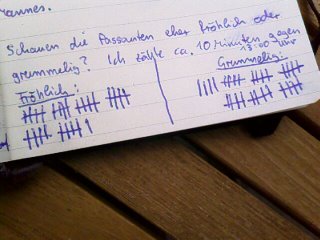 mannes.
Schauen die Passanten eher fröhlich oder
grummelig? Ich zählte ca. 10 Minuten gegen
13:00 Uhr
Fröhlich: Grummelig: